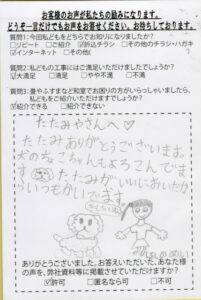 お客様のお声が私たちの励みになります。
どうぞ一言だけでもお声をお寄せください、お待ちしております。
質問1:今回私どもをどちらでお知りになりましたか?
□リピート □ご紹介 ☑折込チラシ □その他のチラシ・ハガキ
☑インターネット □その他(
質問2:私どもの工事にはご満足いただけましたでしょうか?
☑大満足 □満足 □やや不満 □不満
質問3:畳やふすまなど和室でお困りの方がいらっしゃいましたら、
私どもをご紹介いただけますでしょうか?
☑紹介できる □紹介できない
たたみやさんへ♡
たたみありがとうございます。
犬のなこちゃんもよろこんでます
たたみがいいにおいだか
らいつもかいでます
ありがとうございました。お答えいただいた、あなた様
の声を、弊社資料等に掲載させていただけますか?
☑許可 □匿名なら可 □不可